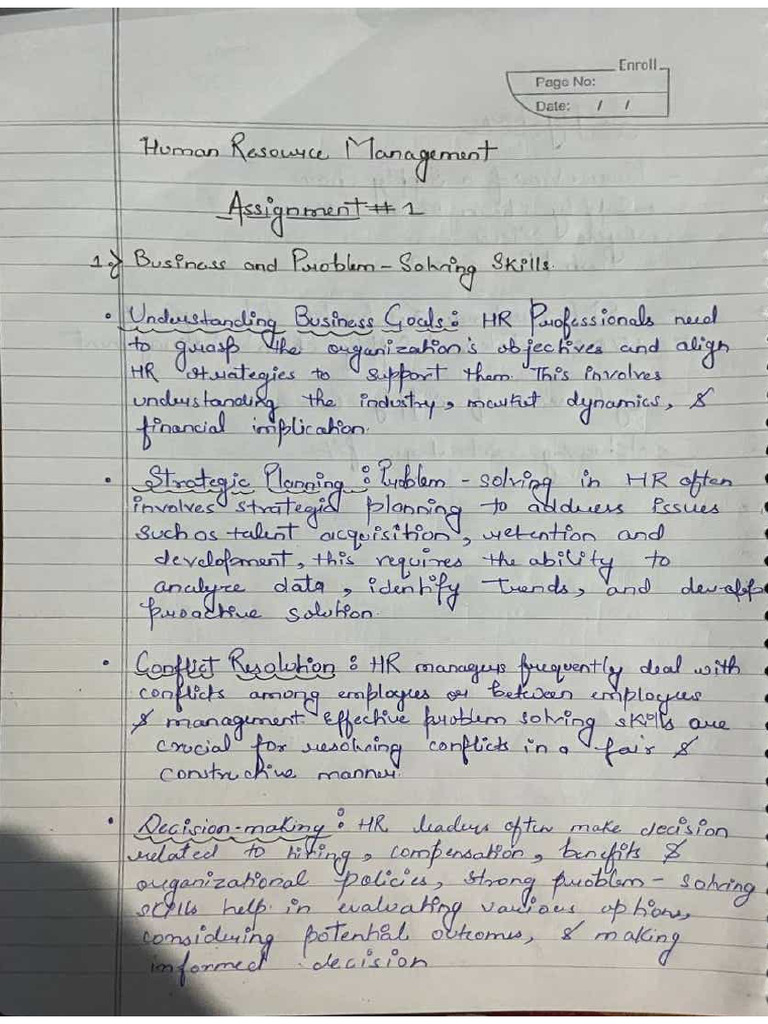 Enroll
Page No:
Date: / /
Human Resource Management
Assignment # 1
1.) Business and Problem - Solving Skills.
• Understanding Business Goals : HR Professionals need
to grasp the organization's objectives and align
HR strategies to support them. This involves
understanding the industry, market dynamics, &
financial implication.
• Strategic Planning : Problem - solving in HR often
involves strategic planning to address issues
such as talent acquisition, retention and
development, this requires the ability to
analyze data, identify trends, and
proactive solution.
• Conflict Resolution : HR managers frequently deal with
conflicts among employees or between employees
& management. Effective problem solving skills are
crucial for resolving conflicts in a fair &
constructive manner.
• Decision-making : HR leaders often make decision
related to hiring, compensation, benefits &
organizational policies, strong problem - solving
skills help in evaluating various options,
considering potential outcomes, & making
informed decision